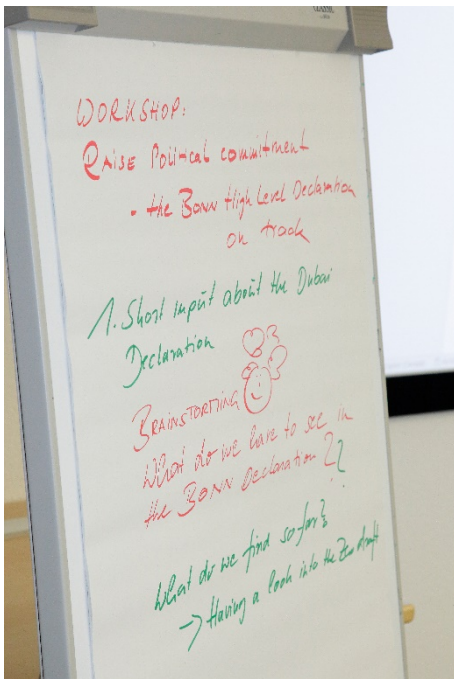 CLASSIC
WORKSHOP:
RAISE Political commitment
- the BONN High Level Declaration
on track
1. Short input about the Dubai
Declaration
BRAINSTORMING
What do we have to see in
the BONN Declaration??
What do we find so far?
→ Having a look into the Zero draft